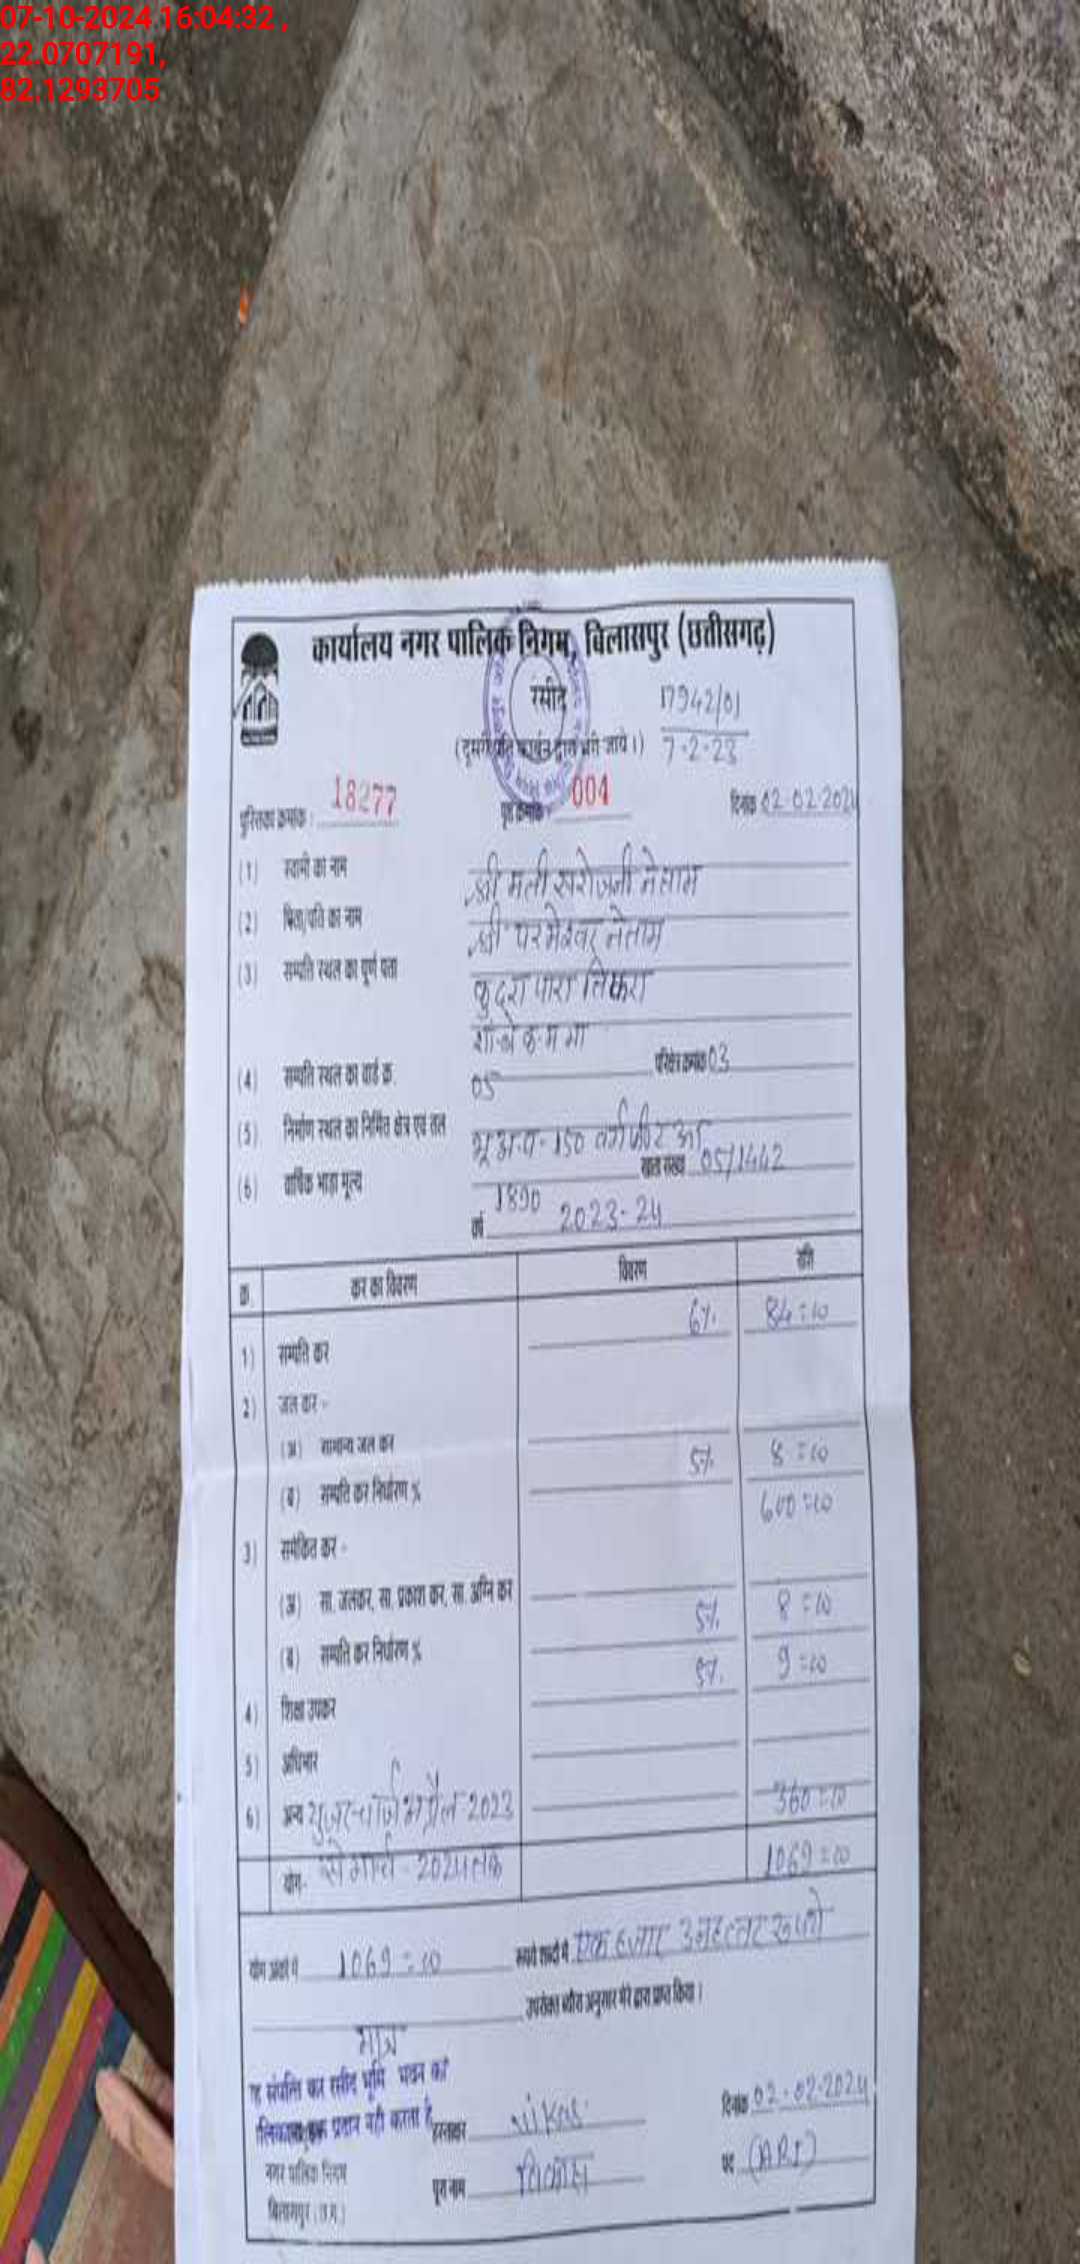 07-10-2024 16:04:32 ,
22.0707191,
82.1293705
कार्यालय नगर पालिक निगम, बिलासपुर (छत्तीसगढ़)
रसीद
17942/01
7-2-23
पुस्तिका क्रमांक : 18277 पृष्ठ क्रमांक : 004 दिनांक 02-02-2024
(1) स्वामी का नाम श्रीमती सरोजनी नेताम
(2) पिता/पति का नाम श्री परमेश्वर नेताम
(3) सम्पति स्थल का पूर्ण पता कुदरा पारा तिफरा
(4) सम्पति स्थल का वार्ड क्र. 05 परिक्षेत्र क्रमांक 03
(5) निर्माण स्थल का निर्मित क्षेत्र एवं तल 150 वर्ग फीट
खाता संख्या 05/1442
(6) वार्षिक भाड़ा मूल्य 1890
वर्ष 2023-24
क्र. कर का विवरण विवरण राशि
1) सम्पति कर 6%. 84=00
2) जल कर -
(अ) सामान्य जल कर
(ब) सम्पति कर निर्धारण % 5%. 8=00
600=00
3) समेकित कर -
(अ) सा. जलकर, सा. प्रकाश कर, सा. अग्नि कर
(ब) सम्पति कर निर्धारण % 5%. 8=00
4) शिक्षा उपकर 5%. 9=00
5) अधिभार
6) अन्य युजर चार्ज अप्रैल 2023 360=00
योग- से मार्च - 2024 तक 1069=00
योग अंकों में 1069=00 रूपये शब्दों में एक हजार उनहत्तर रूपये
उपरोक्त ब्यौरा अनुसार मेरे द्वारा प्राप्त किया ।
मात्र
संपत्ति कर रसीद भूमि भवन का
प्रदान नहीं करता है
हस्ताक्षर दिनांक 02-02-2024
नगर पालिक निगम
पूरा नाम विकास पद (ARI)
बिलासपुर (छ.ग.)